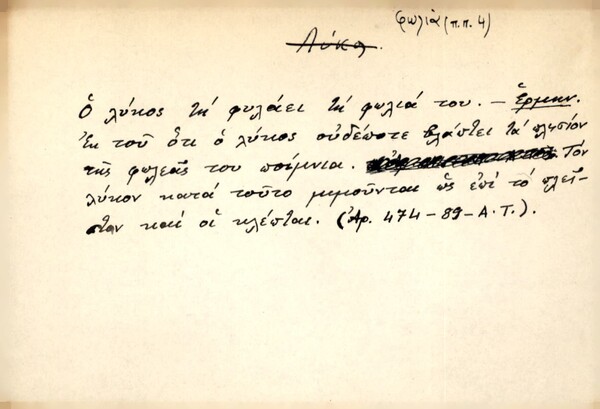 φωλιὰ (π.π. 4)
Λύκο.
Ὁ λύκος τή φυλάει τή φωλιά του. – Ἑρμην.
Ἐκ τοῦ ὅτι ὁ λύκος οὐδέποτε βλάπτει τά πλησίον
τῆς φωλεᾶς του ποίμνια. Τόν
λύκον κατά τοῦτο μιμοῦνται ὡς ἐπί τό πλεῖ-
στον καί οἱ κλέπται. (Ἀρ. 474-89-Α.Τ.).